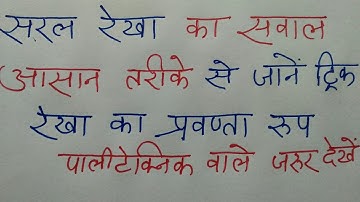 सरल रेखा का सवाल
आसान तरीके से जानें ट्रिक
रेखा का प्रवणता रुप
पालीटेक्निक वाले जरुर देखें